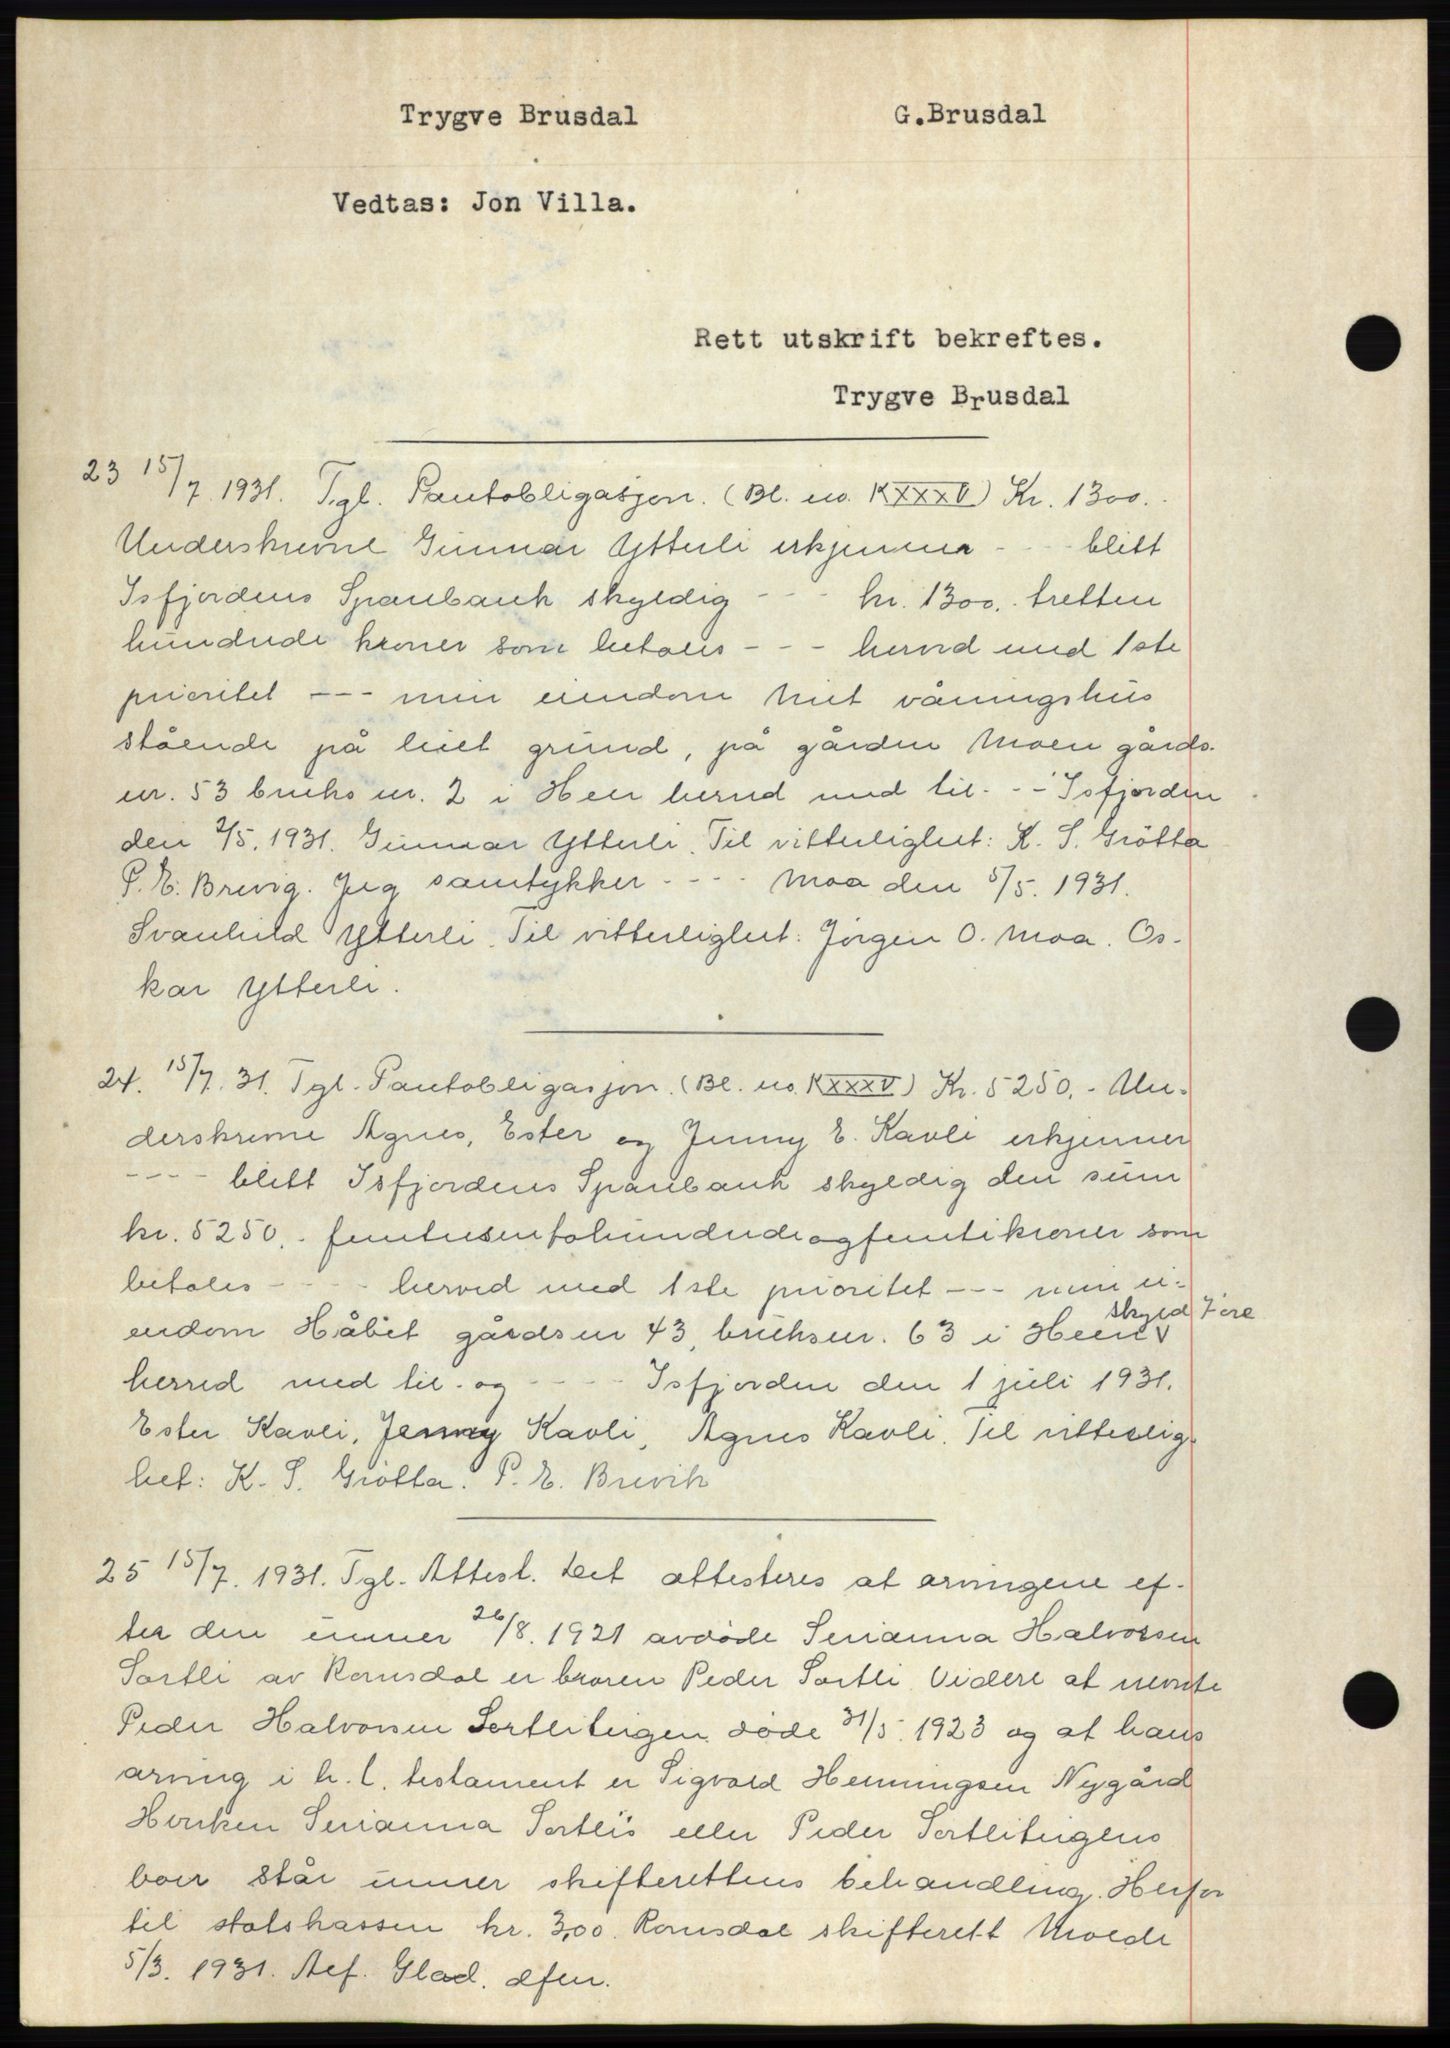 Trygve Brusdal G.Brusdal
Vedtas: Jon Villa.
Rett utskrift bekreftes.
Trygve Brusdal
23 15/7. 1931. Tgl. Pantobligasjon. (Bl. no. KXXXV) Kr. 1300.-
Underskrevne Gunnar Ytterli erkjenner - - - blitt
Isfjordens Sparebank skyldig - - - kr. 1300.- tretten
hundrede kroner som betales - - - herved med 1ste
prioritet - - - min eiendom mit våningshus
stående på leiet grund, på gården Moen gårds-
nr. 53 bruks nr. 2 i Hen herred med til- - - Isfjorden
den 2/5. 1931. Gunnar Ytterli. Til vitterlighet: K. S. Gròtta
P. E. Brevig. Jeg samtykker - - - - Moa den 5/5. 1931.
Svanhild Ytterli. Til vitterlighet: Jörgen O. Moa. Os-
kar Ytterli.
24. 15/7. 31. Tgl. Pantobligasjon. (Bl. no. KXXXV) Kr. 5250.- Un-
derskrevne Agnes, Ester og Jenny E. Kavli erkjenner
- - - - blitt Isfjordens Sparebank skyldig den sum
kr. 5250.- femtusentohundredeogfemtikroner som
betales - - - - herved med 1ste prioritet - - - min ei-
endom Håbet gårdsnr 43, bruksnr. 63 i Heen v skyld 7 øre
herred med til- og - - - - Isfjorden den 1 juli 1931.
Ester Kavli, Jenny Kavli, Agnes Kavli. Til vitterlig-
het: K. S. Gròtta. P. E. Brevik
25 15/7. 1931. Tgl. Attest. Det attesteres at arvingene ef-
ter den unner 26/8. 1921 avdøde Serianna Halvorsen
Sortli av Romsdal er broren Peder Sortli. Videre at nevnte
Peder Halvorsen Sortliteigen døde 31/5. 1923 og at hans
arving i h. t. testament er Sigvald Henningsen Nygård
Hverken Serianna Sortli's eller Peder Sortliteigens
boer står unner skifterettens behandling. Herfor
til statskassen kr. 3,00. Romsdal skifterett Molde
5/3. 1931. Alf. Glad. dfm.